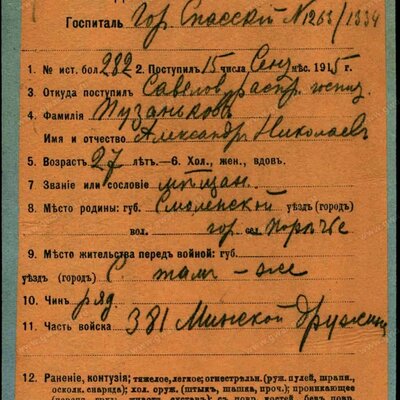 Госпиталь Гор. Спасскій № 1263/1334
1. № ист. бол. 282 2. Поступилъ 15 числа Сен. мѣс. 1915 г.
3. Откуда поступил Савелов. распр. госпиз.
4. Фамилія Пузаньковъ
Имя и отчество Александръ Николаевъ
5. Возрастъ 27 лѣтъ.—6. Хол., жен., вдов.
7. Званіе или сословіе мѣщан.
8. Мѣсто родины: губ. Смоленской уѣздъ (городъ)
вол. гор. сел. Порѣчье
9. Мѣсто жительства передъ войной: губ.
уѣздъ (городъ) С. тамъ-же
10. Чинъ ряд.
11. Часть войска 381 Минской дружины
12. Раненіе, контузія; тяжелое, легкое; огнестрѣльн. (руж. пулей, шрапн.,
осколк. снаряда); хол. оруж. (штык, шашка, проч.); проникающее